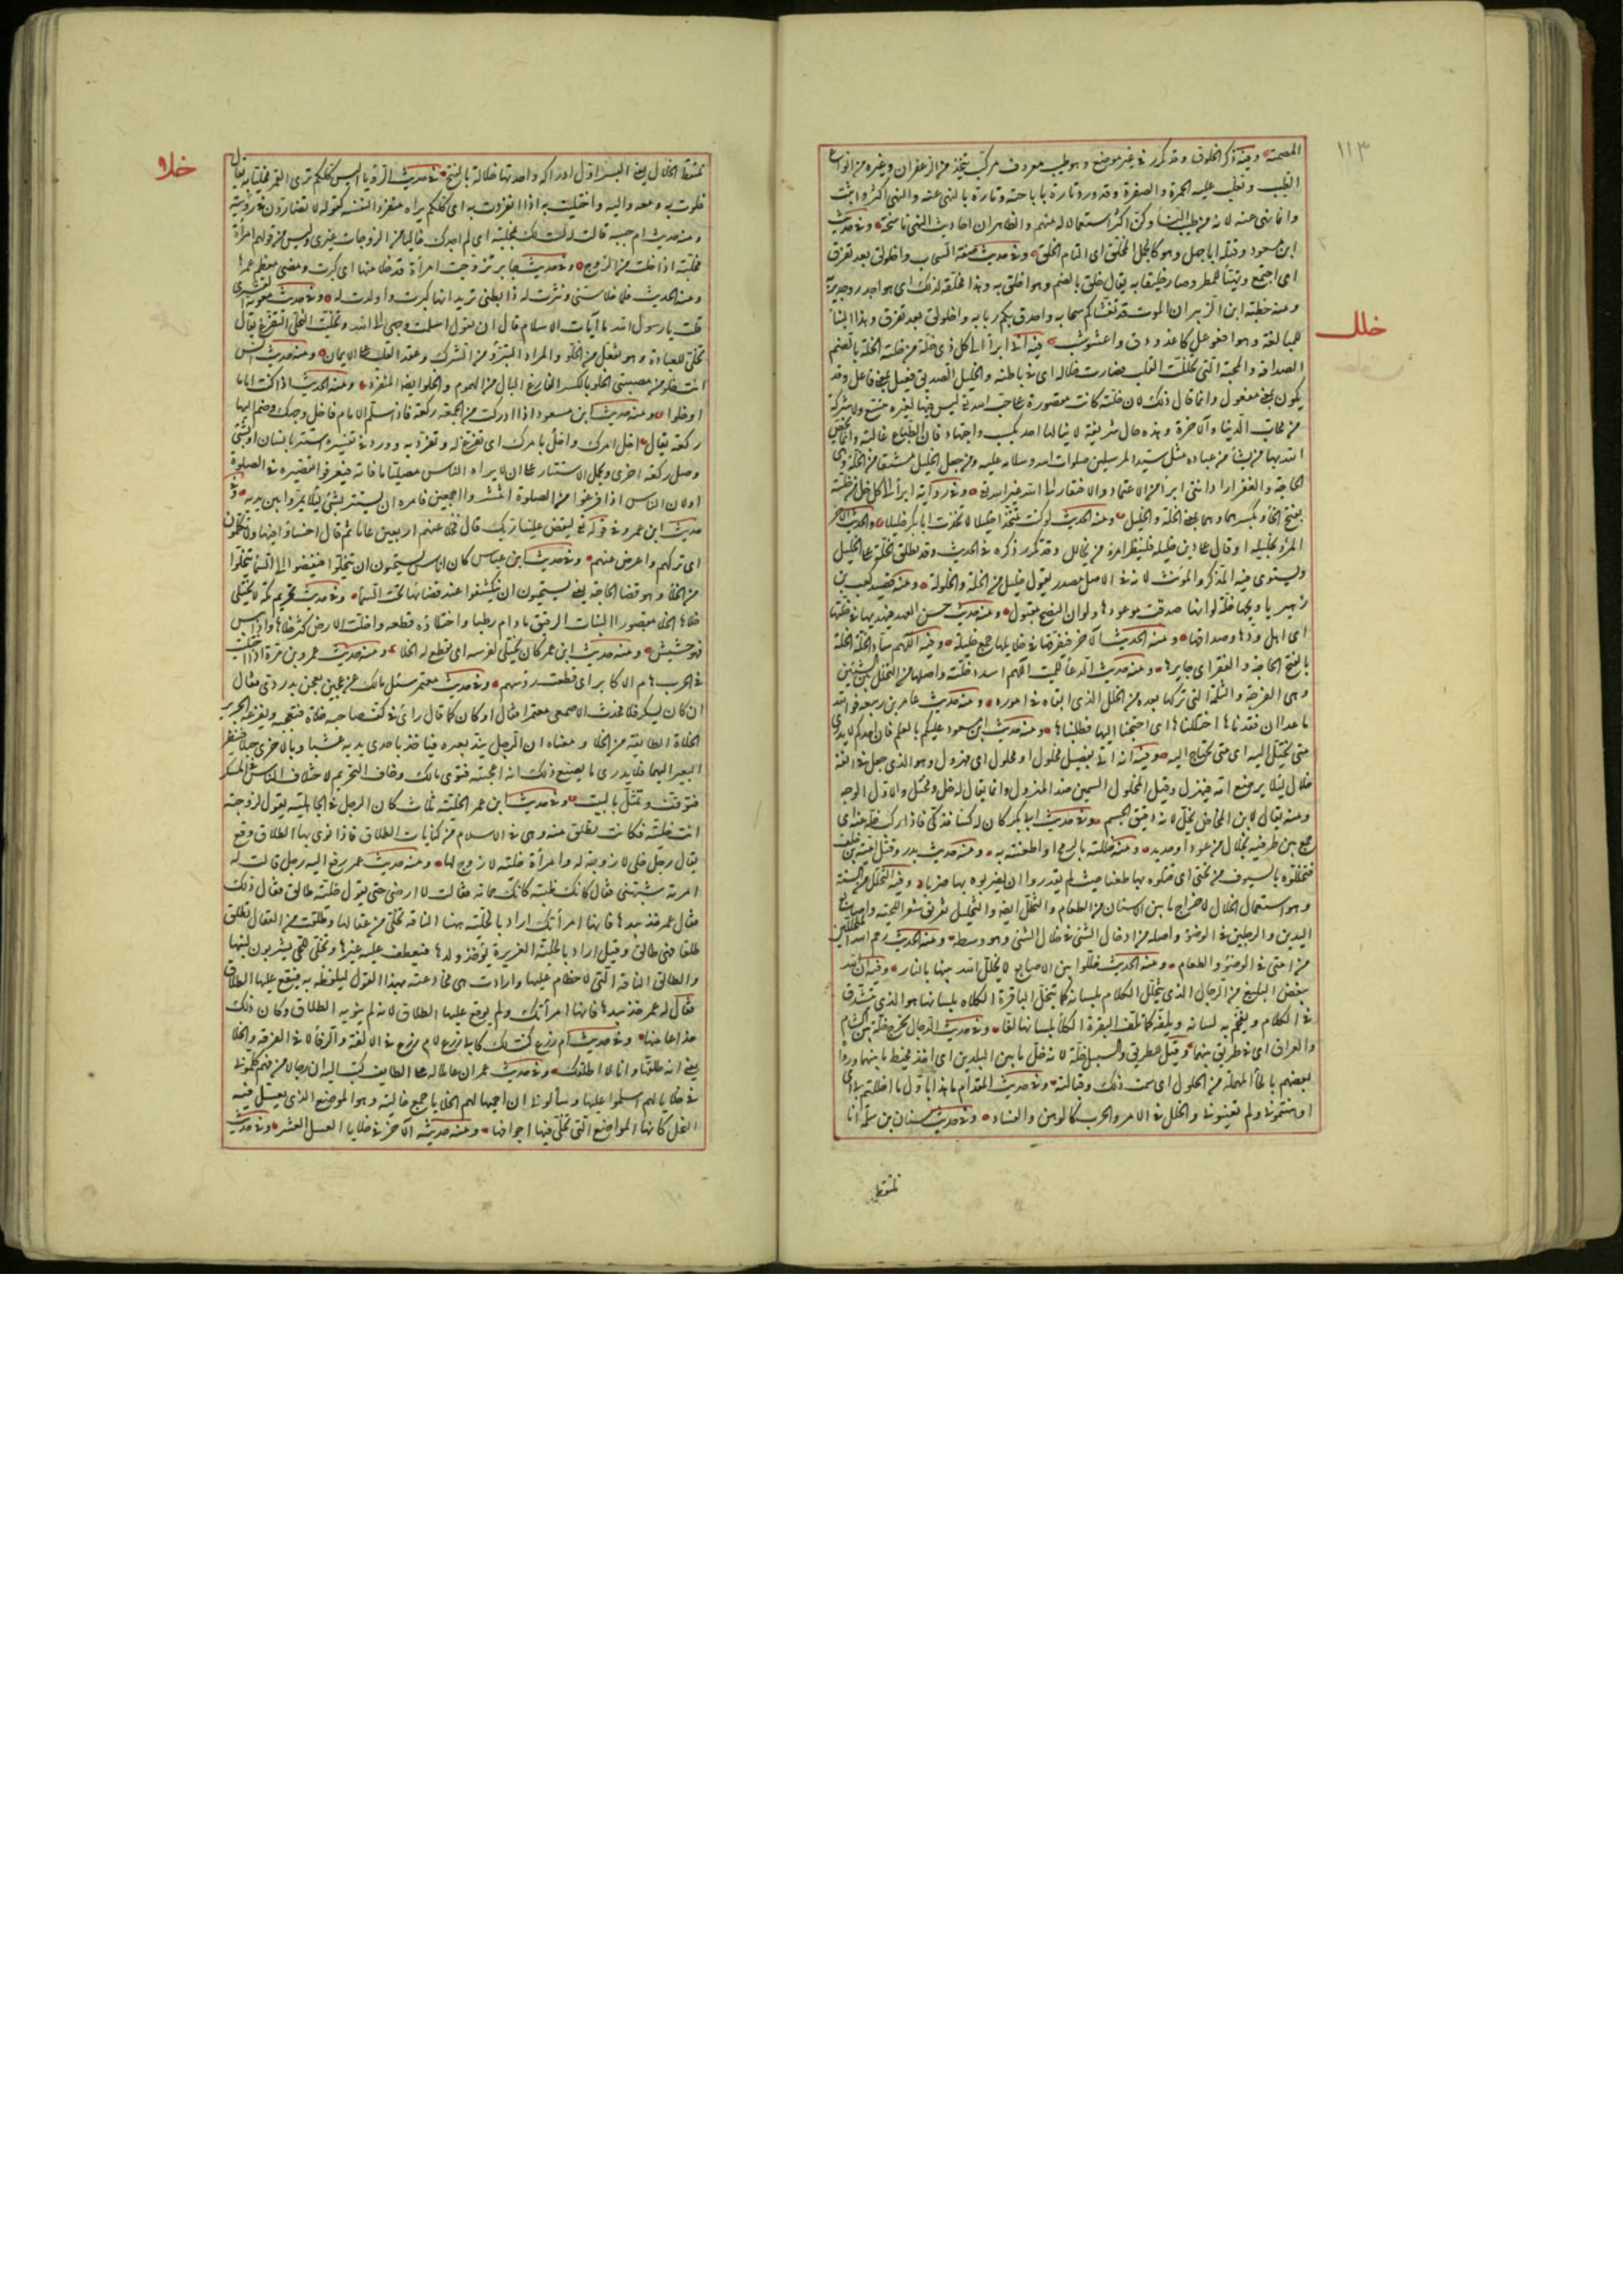 ١١٣
المصمتة وفيه ذكر الخلوق وقد تكرر في غير موضع وهو طيب معروف مركب يتخذ من الزعفران وغيره من انواع
الطيب وتغلب عليه الحمرة والصفرة وقد ورد تارة باباحته وتارة بالنهي عنه والنهي اكثر واثبت
وانما نهى عنه لانه من طيب النساء وكن اكثر استعمالا له منهم والظاهر ان احاديث النهي ناسخة وفي حديث
ابن مسعود وقتله ابا جهل وهو كالجمل المخلق اي التام الخلق وفي حديث صفة السحاب واخلولق بعد تفرق
اي اجتمع وتهيأ للمطر وصار خليقا به يقال خلق بالضم وهو اخلق به وهذا مخلقة لذلك اي هو اجدر وجدير به
ومنه خطبة ابن الزبير ان الموت قد تغشاكم سحابه واحدق بكم ربابه واخلولق بعد تفرق وهذا البناء
خلل
للمبالغة وهو افعوعل كاغدودق واعشوشب فيه اني ابرأ الى كل ذي خلة من خلته الخلة بالضم
الصداقة والمحبة التي تخللت القلب فصارت خلاله اي في باطنه والخليل الصديق فعيل بمعنى فاعل وقد
يكون بمعنى مفعول وانما قال ذلك لان خلته كانت مقصورة على حب الله تعالى فليس فيها لغيره متسع ولا شركة
من محاب الدنيا والآخرة وهذه حال شريفة لا ينالها احد بكسب واجتهاد فان الطباع غالبة وانما يخص
الله بها من يشاء من عباده مثل سيد المرسلين صلوات الله وسلامه عليه ومن جعل الخليل مشتقا من الخلة وهي
الحاجة والفقر اراد انني ابرأ من الاعتماد والافتقار الى احد غير الله تعالى وفي رواية ابرأ الى كل خل من خلته
بفتح الخاء وبكسرها وهما بمعنى الخلة والخليل ومنه الحديث لو كنت متخذا خليلا لاتخذت ابا بكر خليلا والحديث الآخر
المرء بخليله او قال على دين خليله فلينظر امرؤ من يخالل وقد تكرر ذكره في الحديث وقد تطلق الخلة على الخليل
ويستوي فيه المذكر والمؤنث لانه في الاصل مصدر تقول خليل بين الخلة والخلولة ومنه قصيد كعب بن
زهير يا ويحها خلة لو انها صدقت موعودها ولو ان النصح مقبول ومنه حديث حسن العهد فيهديها في خلتها
اي اهل ودها وصداقتها ومنه الحديث الآخر فيفرقها في خلايلها جمع خليلة وفيه اللهم ساد الخلة الخلة
بالفتح الحاجة والفقر اي جابرها ومنه حديث الدعاء للميت اللهم اسدد خلته واصلها من التخلل بين الشيئين
وهي الفرجة والثلمة التي تركها بعده من الخلل الذي ابقاه في اموره ومنه حديث عامر بن ربيعة فوالله
ما عدا ان فقدناها اختللناها اي احتجنا اليها فطلبناها ومنه حديث ابن مسعود عليكم بالعلم فان احدكم لا يدري
متى يختل اليه اي متى يحتاج اليه وفيه انه اتي بفصيل مخلول او محلول اي مهزول وهو الذي جعل في انفه
خلال لئلا يرضع امه فيهزل وقيل المخلول السمين ضد المهزول وانما يقال له خل ومختل والاول الوجه
ومنه يقال لابن المخاض خل لانه دقيق الجسم وفي حديث ابي بكر كان له كساء فدكي فاذا ركب خله عليه اي
جمع بين طرفيه بخلال من عود او حديد ومنه خللته بالرمح اذا طعنته به ومنه حديث بدر وقتل امية بن خلف
فتخللوه بالسيوف من تحتي اي قتلوه بها طعنا حيث لم يقدروا ان يضربوه بها ضربا وفيه التخلل من السنة
وهو استعمال الخلال لاخراج ما بين الاسنان من الطعام والتخلل ايضا والتخليل تفريق شعر اللحية واصابع
اليدين والرجلين في الوضوء واصله من ادخال الشيء في خلال الشيء وهو وسطه ومنه الحديث رحم الله المتخللين
من امتي في الوضوء والطعام ومنه الحديث خللوا بين الاصابع لا يخلل الله بينها بالنار وفيه ان الله
يبغض البليغ من الرجال الذي يتخلل الكلام بلسانه كما تتخلل الباقرة الكلاء بلسانها هو الذي يتشدق
في الكلام ويفخم به لسانه ويلفه كما تلف البقرة الكلأ بلسانها لفا وفي حديث الدجال يخرج خلة بين الشام
والعراق اي في طريق بينهما وقيل للطريق والسبيل خلة لانه خل ما بين البلدين اي اخذ مخيط ما بينهما ورواه
بعضهم بالحاء المهملة من الحلول اي سمت ذلك وقبالته وفي حديث المقدام ما هذا باول ما اخللتم بي اي
اوهنتموني ولم تعينوني والخلل في الامر والحرب كالوهن والفساد وفي حديث سنان بن سلمة انا
نلتقط
خلا
نلتقط الخلال يعني البسر اول ادراكه واحدتها خلالة بالفتح في حديث الرؤيا اليس كلكم يرى القمر مخليا به يقال
خلوت به ومعه واليه واخليت به اذا انفردت به اي كلكم يراه منفردا لنفسه كقوله لا تضارون في رؤيته
ومنه حديث ام حبيبة قالت له لست لك بمخلية اي لم اجدك خاليا من الزوجات غيري وليس من قولهم امرأة
مخلية اذا خلت من الزوج وفي حديث جابر تزوجت امرأة قد خلا منها اي كبرت ومضى معظم عمرها
ومنه الحديث فلما خلا سني ونثرت له ذا بطني تريد انها كبرت واولدت له وفي حديث معوية القشيري
قلت يا رسول الله ما آيات الاسلام قال ان تقول اسلمت وجهي الى الله وتخليت التخلي التفرغ يقال
تخلى للعبادة وهو تفعل من الخلو والمراد التبرؤ من الشرك وعقد القلب على الايمان ومنه حديث انس
انت خلو من مصيبتي الخلو بالكسر الفارغ البال من الهموم والخلو ايضا المنفرد ومنه الحديث اذا كنت اماما
او خلوا ومنه حديث ابن مسعود اذا ادركت من الجمعة ركعة فاذا سلم الامام فاخل وجهك وضم اليها
ركعة يقال اخل امرك واخل بامرك اي تفرغ له وتفرد به وورد في تفسيره استتر بانسان او بشيء
وصل ركعة اخرى ويحمل الاستتار على ان لا يراه الناس مصليا ما فاته فيعرفوا تقصيره في الصلوة
او لان الناس اذا فرغوا من الصلوة انتشروا راجعين فامره ان يستتر بشيء لئلا يمروا بين يديه وفي
حديث ابن عمر وفي قوله تعالى ليقض علينا ربك قال فخلى عنهم اربعين عاما ثم قال اخسؤا فيها ولا تكلمون
اي تركهم واعرض عنهم وفي حديث ابن عباس كان اناس يستحيون ان يتخلوا فيفضوا الى السماء يتخلوا
من الخلاء وهو قضاء الحاجة يعني يستحيون ان ينكشفوا عند قضائها تحت السماء وفي حديث تحريم مكة لا يختلى
خلاها الخلا مقصور النبات الرقيق ما دام رطبا واختلاؤه قطعه واخلت الارض كثر خلاها واذا يبس
فهو حشيش ومنه حديث ابن عمر كان يختلي لفرسه اي يقطع له الخلا ومنه حديث عمرو بن مرة اذا اختليت
في الحرب هام الاكابر اي قطعت رؤسهم وفي حديث معتمر سئل مالك عن عجين يعجن بدردي فقال
ان كان يسكر فلا فحدث الاصمعي معتمرا فقال او كان كما قال رأى في كف صاحبه خلاة فتعجبه ويفزعه الجرير
الخلاة الطائفة من الخلا ومعناه ان الرجل يند بعيره فياخذ باحدى يديه عشبا وبالاخرى حبلا فينظر
البعير اليهما فلا يدري ما يصنع وذلك انه اعجبته فتوى مالك وخاف التحريم لاختلاف الناس في المسكر
فتوقف وتمثل بالبيت وفي حديث ابن عمر الخلية ثلاث كان الرجل في الجاهلية يقول لزوجته
انت خلية فكانت تطلق منه وهي في الاسلام من كنايات الطلاق فاذا نوى بها الطلاق وقع
يقال رجل خلي لا زوجة له وامرأة خلية لا زوج لها ومنه حديث عمر رفع اليه رجل قالت له
امرته شبهني فقال كانك ظبية كانك حمامة فقالت لا ارضى حتى تقول خلية طالق فقال ذلك
فقال عمر خذ بيدها فانها امرأتك اراد بالخلية ههنا الناقة تخلى من عقالها وطلقت من العقال تطلق
طلقا فهي طالق وقيل اراد بالخلية الغزيرة يؤخذ ولدها فيعطف عليه غيرها وتخلى للحي يشربون لبنها
والطالق الناقة التي لا خطام عليها وارادت هي مخادعته بهذا القول ليلفظ به فيقع عليها الطلاق
فقال له عمر خذ بيدها فانها امرأتك ولم يوقع عليها الطلاق لانه لم ينو به الطلاق وكان ذلك
خداعا منها وفي حديث ام زرع كنت لك كابي زرع لام زرع في الالفة والرفاء لا في الفرقة والخلاء
يعني انه طلقها وانا لا اطلقك وفي حديث عمر ان عاملا له على الطايف كتب اليه ان رجالا من فهم كلموني
في خلايا لهم اسلموا عليها وسألوني ان احميها لهم الخلايا جمع خلية وهو الموضع الذي تعسل فيه
النحل كانها المواضع التي تخلي فيها اجوافها ومنه حديثه الآخر في خلايا العسل العشر وفي حديث